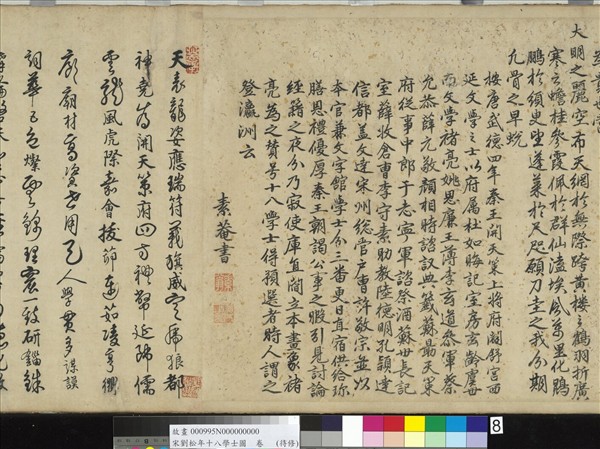 大明之麗空布天網於無際跨黃樓之鶴羽折廣
寒之蟾桂參霞佩於群仙溘埃風萬里化鵾
鵬於須臾望蓬萊於咫尺願刀圭之我分期
九骨之早蛻
按唐武德四年秦王開天策上將府闢舒宮西
延文學之士以府屬杜如晦記室房玄齡虞世
南文學褚亮姚思廉主簿李玄道參軍蔡
允恭薛元敬顏相時諮議典籤蘇勗天策
府從事中郎于志寧軍諮祭酒蘇世長記
室薛收倉曹李守素助教陸德明孔穎達
信都蓋文達宋州總管戶曹許敬宗並以
本官兼文學館學士分三番更日直宿供給珍
膳恩禮優厚秦王朝謁公事之暇引見討論
經籍之夜分乃寢使庫直閻立本畫象褚
亮為之贊号十八學士得預選者時人謂之
登瀛洲云
素菴書
天表龍姿應瑞符義旗威定虎狼都
神堯為開天策府四方禮幣延師儒
雲龍風虎際嘉會拔茆連茹陵亨衢
廊廟材高資世用天人學貫多謀謨
詞華五色燦雲錦理處一致研錙銖
故畫 000995N000000000
宋劉松年十八學士圖 卷 (待修)
8